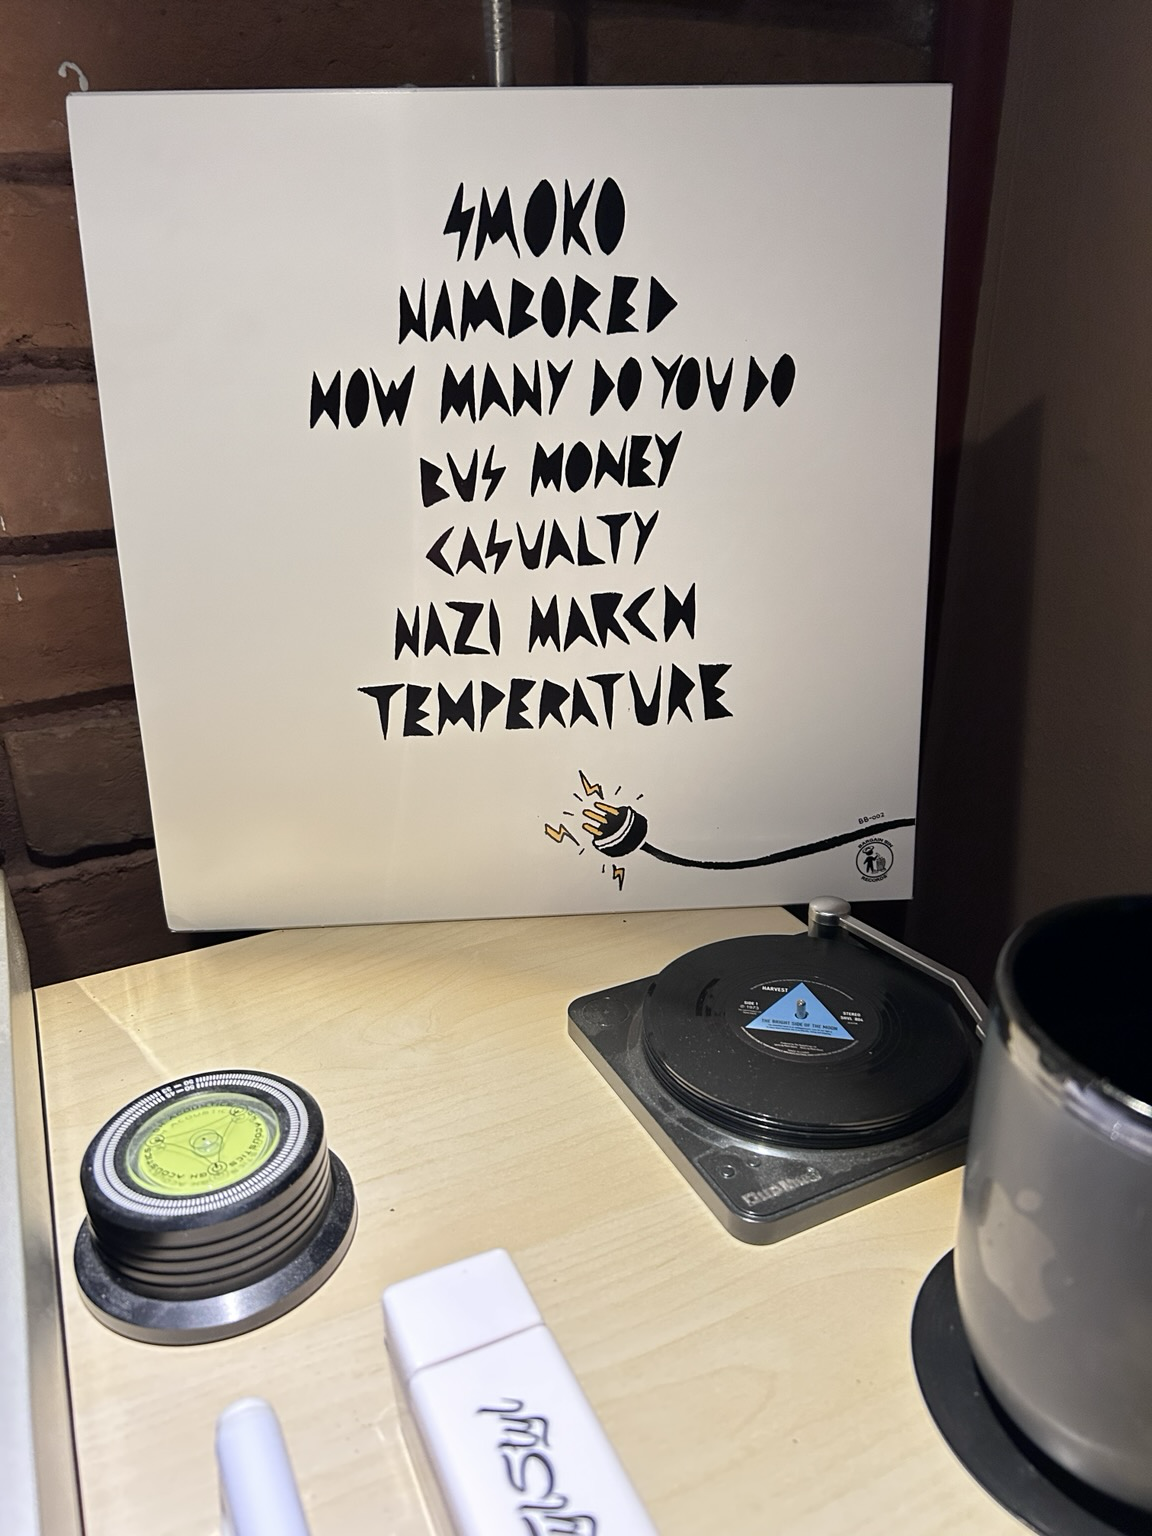 SMOKO
NAMBORED
HOW MANY DO YOU DO
BUS MONEY
CASUALTY
NAZI MARCH
TEMPERATURE
BB-002
BARGAIN BIN
RECORDS
HARVEST
SIDE 1
STEREO
SHVL 804
THE BRIGHT SIDE OF THE MOON
ACOUSTICS